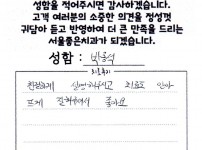 성함을 적어주시면 감사하겠습니다.
고객 여러분의 소중한 의견을 정성껏
귀담아 듣고 반영하여 더 큰 만족을 드리는
서울좋은치과가 되겠습니다.
성함 :
친절하게 설명해주시고 치료도 안아
프게 잘해주셔서 좋아요